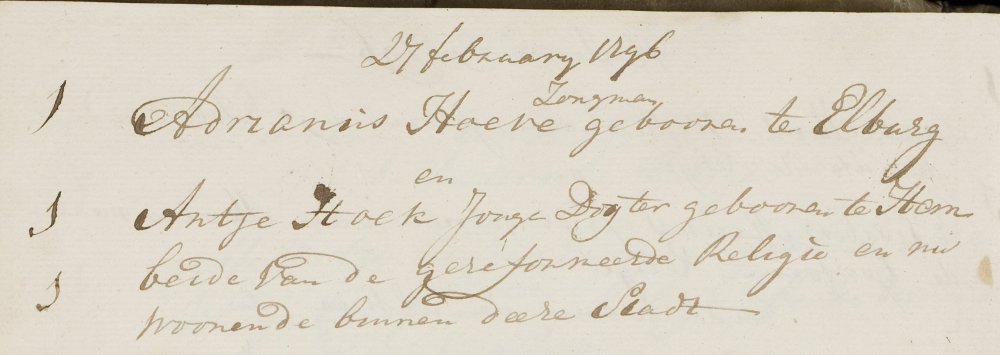 27 february 1796
Jongman
Adrianus Hoeve gebooren te Elburg
en
Antje Hoek Jonge Dogter gebooren te Hem
beide van de gereformeerde Religie en nu
woonende binnen deere Stadt